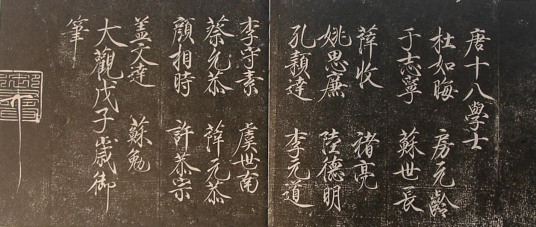 唐十八學士
杜如晦 房元齡
于志寧 蘇世長
薛收 褚亮
姚思廉 陸德明
孔穎達 李元道
李守素 虞世南
蔡元恭 薛元恭
顏相時 許恭宗
盖文達 蘇勉
大觀戊子歲御
筆